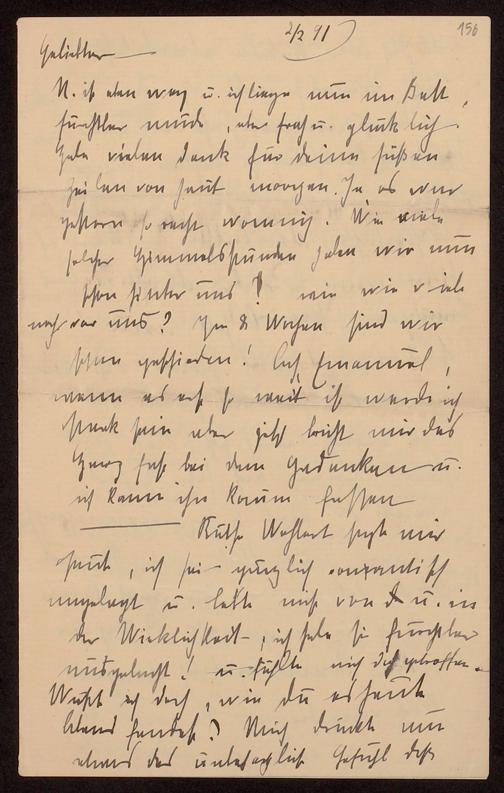 2/2 91
156
Geliebter —
N. ist eben weg u. ich liege nun im Bett,
furchtbar müde, aber froh u. glücklich.
Habe vielen Dank für deine süßen
Zeilen von heut morgen. Ja es war
gestern so recht wonnig. Wie viele
solcher Himmelsstunden haben wir nun
schon hinter uns! wie viele
noch vor uns? In 8 Wochen sind wir
schon geschieden! Ach Emanuel,
wenn es erst so weit ist werde ich
stark sein aber jetzt bricht mir das
Herz fast bei dem Gedanken u.
ich kann ihn kaum fassen
Käthe sagte mir
heute, ich sei gänzlich romantisch
angelegt u. lebte nicht von u. in
der Wirklichkeit, ich habe sie furchtbar
ausgelacht! u. fühlte mich doch getroffen.
Weißt ich doch, wie du es heute
Abend fandest? Mich drückte nun
etwas das unbehagliche Gefühl daß